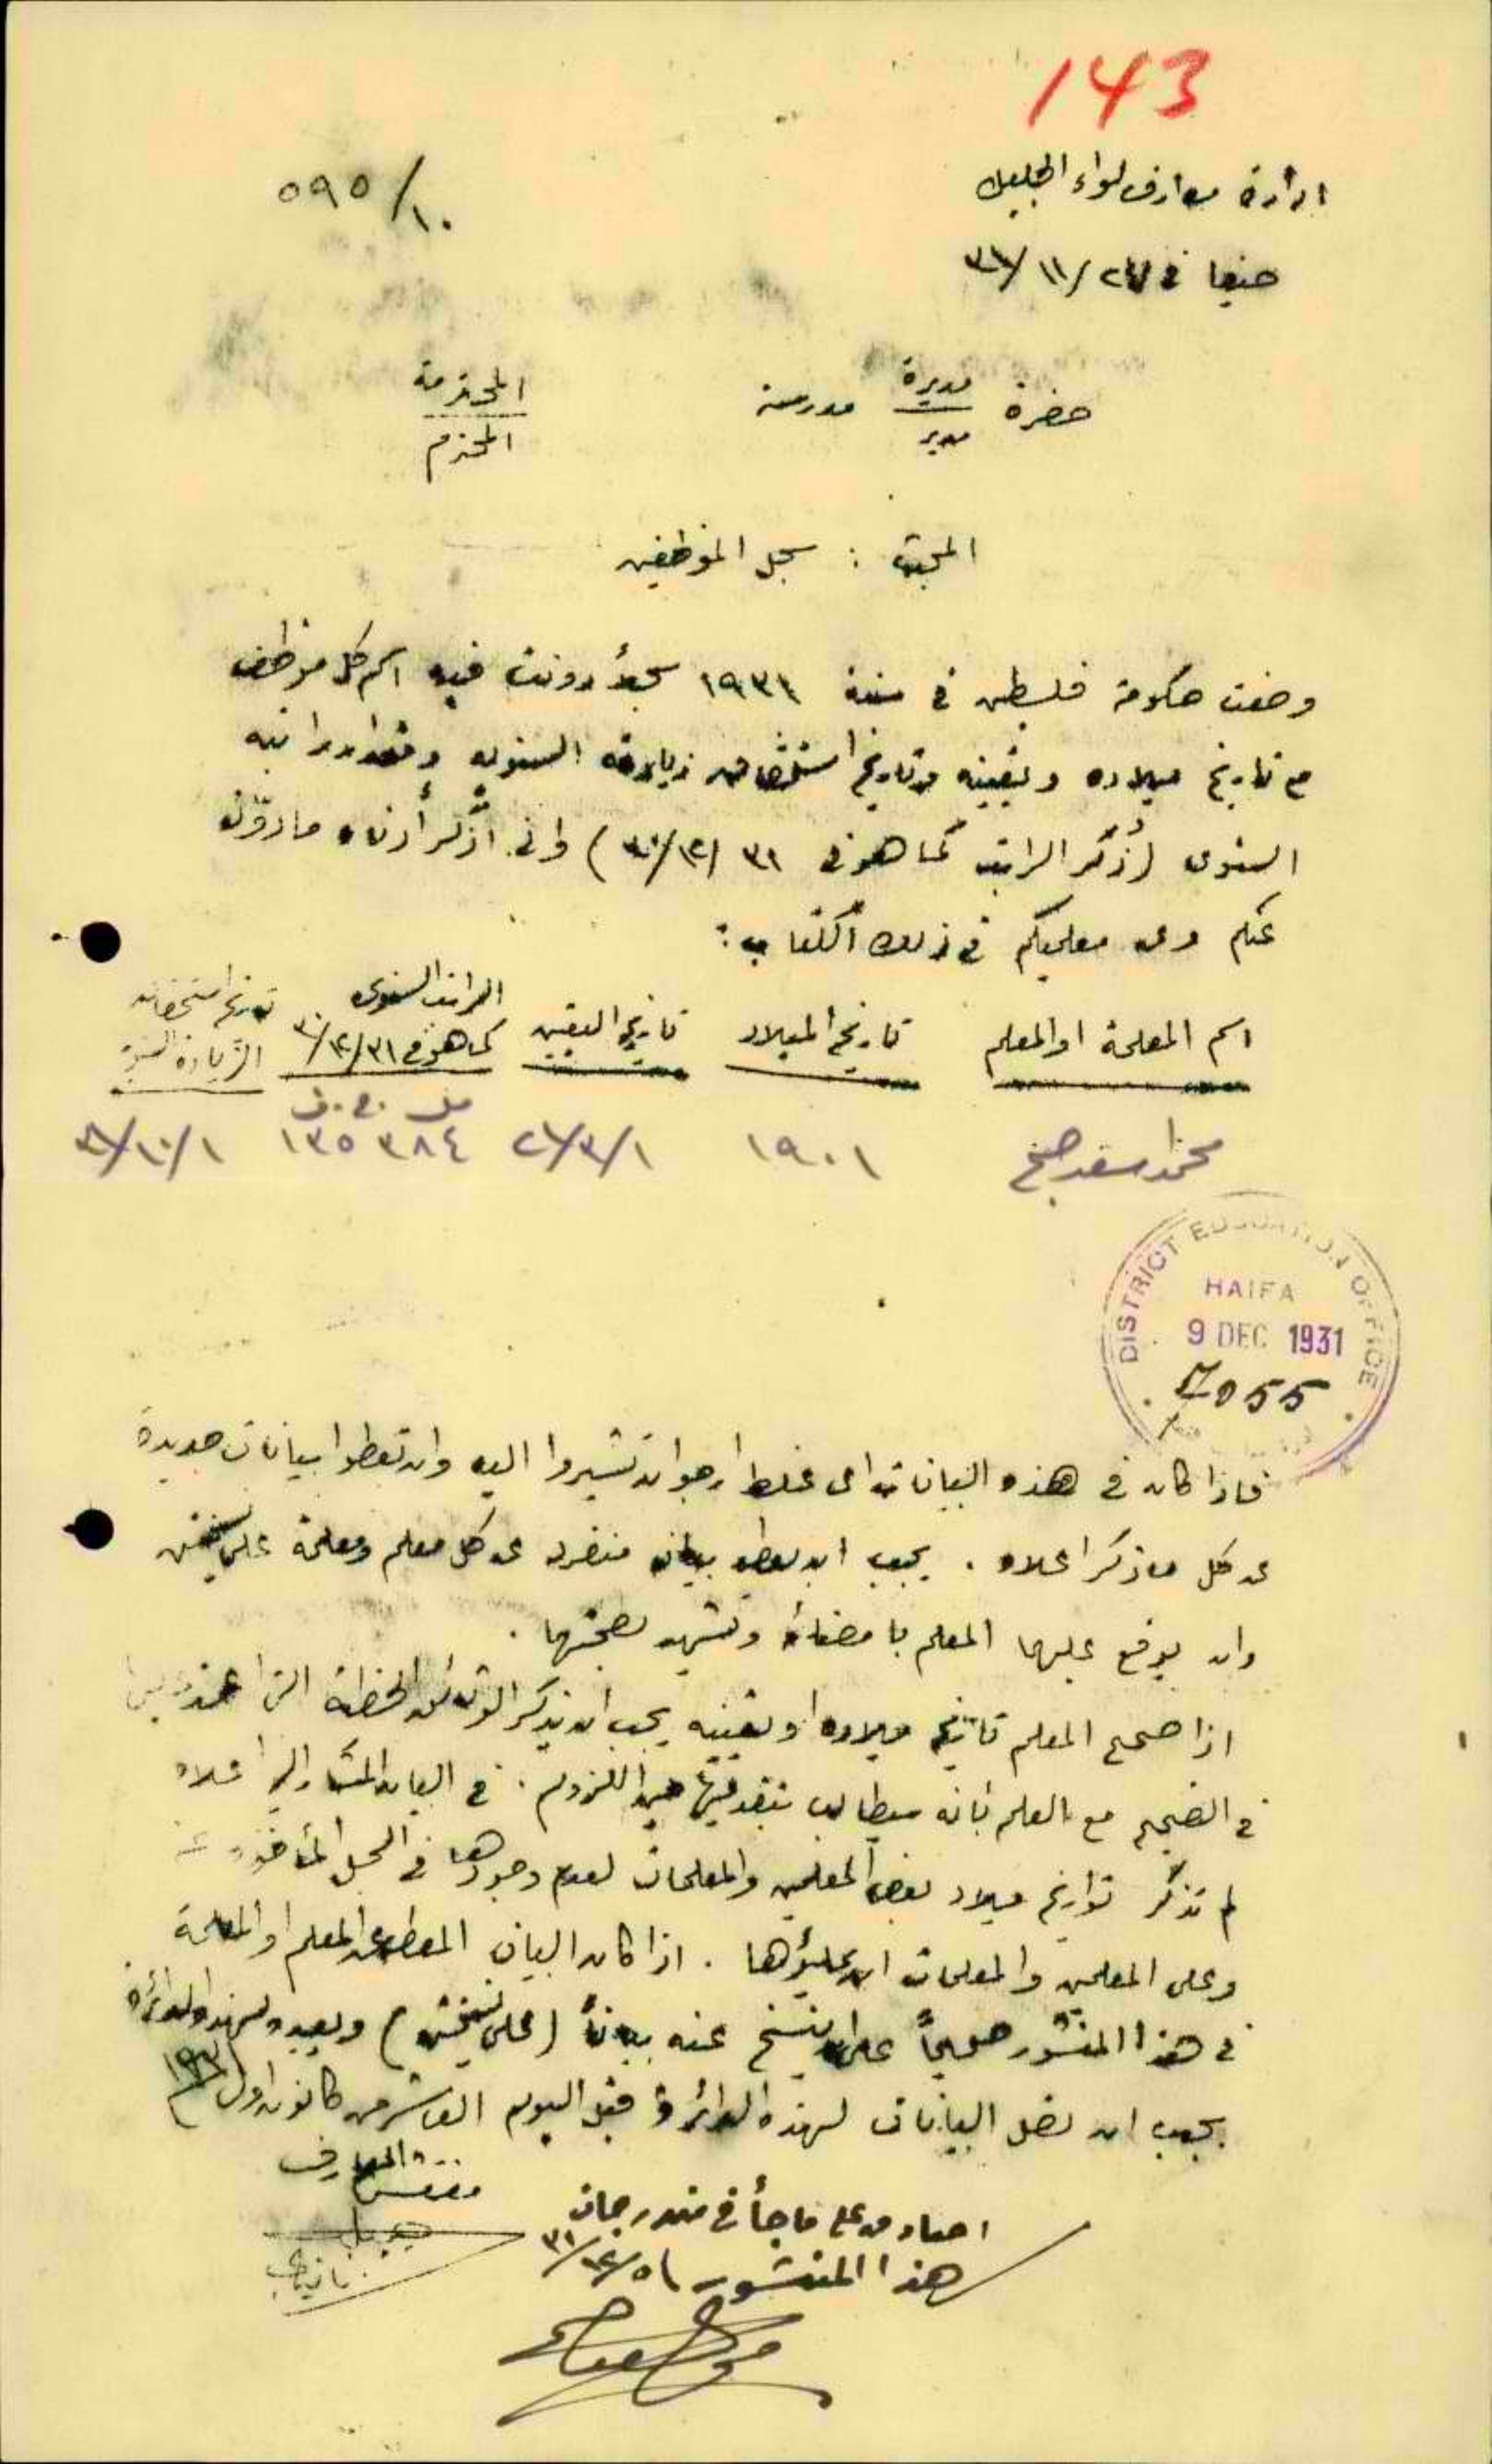 143
ادارة معارف لواء الجليل
٥٩٥/١٠
حيفا في ٣١/١١/٢٤
حضرة مديرة مدرسة المحترمة
مدير المحترم
المبحث : سجل الموظفين
وضعت حكومة فلسطين في سنة ١٩٣١ سجلاً دونت فيه اسم كل موظف
مع تاريخ ميلاده وتعيينه وتاريخ استحقاق زيادته السنوية ومقدار راتبه
السنوي (ذكر الراتب كما هو في ٣١/١٢/٣٠) واني اذكر أدناه ما دوّن
عنكم وعن معلميكم في ذلك الكتاب :
اسم المعلمة او المعلم تاريخ الميلاد تاريخ التعيين الراتب السنوي كما هو في ٣١/١٢/٣٠ تاريخ استحقاق الزيادة السنوية
مل ج.ف
محمد اسعد ١٩٠١ ٢١/٣/١ ٣٨٤ ١٣٥ ٣١/١٠/١
DISTRICT EDUCATION OFFICE
HAIFA
9 DEC 1931
7055
فاذا كان في هذه البيانات اى غلط ارجو ان تشيروا اليه وان تعطوا بيانات جديدة
عن كل ما ذكر اعلاه . يجب ان يعطى بيان منفرد عن كل معلم ومعلمة على نسختين
وان يوقع عليها المعلم بامضائه وتشهد بصحتها .
اذا صحح المعلم تاريخ ميلاده او تعيينه يجب ان يذكر الوثائق الخطية التي اعتمد عليها
في التصحيح مع العلم بانه سيطالب بتقديمها حين اللزوم . في البيان المشار اليه اعلاه
لم تذكر تواريخ ميلاد بعض المعلمين والمعلمات لعدم وجودها في السجل المأخوذ عنه
وعلى المعلمين والمعلمات ان يملؤها . اذا كان البيان المعطى عن المعلم او المعلمة
في هذا المنشور صحيحاً عليه ان ينسخ عنه بياناً (على نسختين) ويعيده لهذه الدائرة
يجب ان تصل البيانات لهذه الدائرة قبل اليوم العاشر من كانون اول ١٩٣١
مفتش المعارف
اصادق على ما جاء في مندرجات
هذا المنشور ٣١/١٢/٥